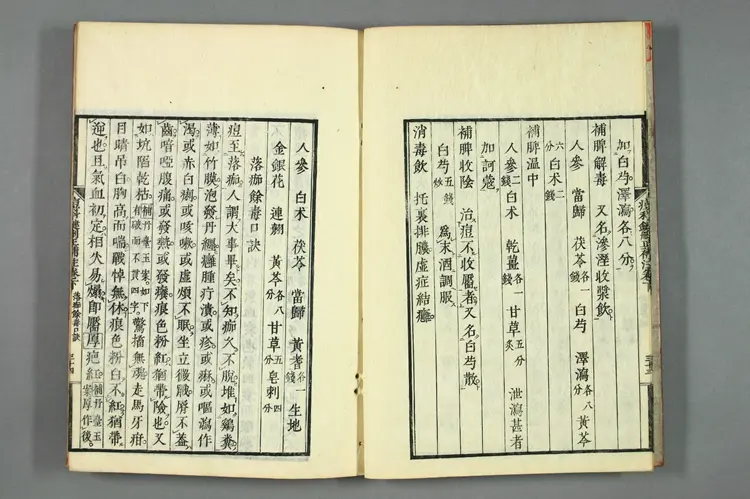 加白芍澤瀉各八分
補脾解毒 又名滲溼收漿飲
人參 當歸 茯苓各一錢 白芍 澤瀉各八分 黃芩
六分 白朮二錢
補脾溫中
人參二錢 白朮 乾薑各一錢 甘草五分炙 泄瀉甚者
加訶蔻
補脾收陰 治痘不收靨者又名白芍散
白芍五錢炒 為末酒調服
消毒飲 托裏排膿虛症結癰
人參 白朮 茯苓 當歸 黃耆各一錢 生地
金銀花 連翹 黃芩各八分 甘草五分 皂刺四分
落痂餘毒口訣
痘至落痂人謂大事畢矣不知痂久不脫堆如鷄糞
薄如竹膜泡發丹纏雝腫疔潰或疹或痳或嘔瀉作
渴或赤白痢或咳嗽或虛煩不眠坐立後戰脣不蓋
齒喑啞腹痛或發癍或發癢痕色粉紅猶帶險也又
如坑陷乾枯補丹臺玉案下有破面不貫四字驚搐無魂走馬牙疳
目暗吊白胸高而喘戰悼無休痕色粉白不紅猶帶
逆也且氣血初定相失易煩即靨厚疤紅補丹臺玉案厚作後
落痂餘毒口訣